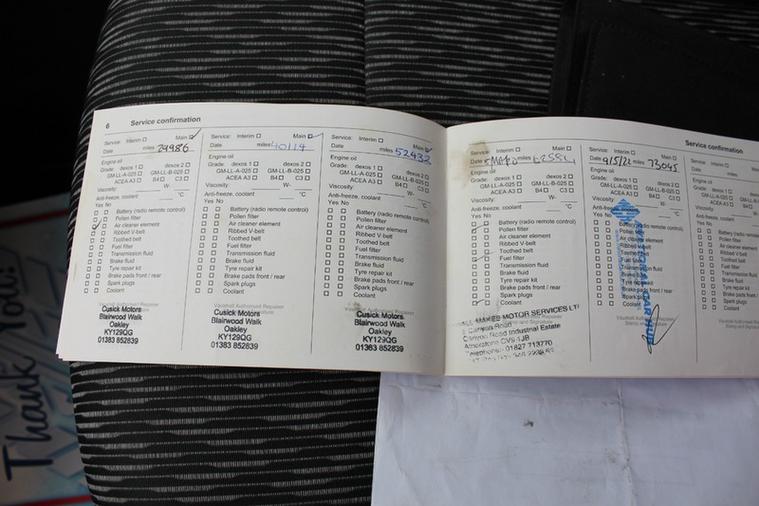 6 Service confirmation
Service: Interim Main
Date miles 29986
Engine oil
Grade: dexos 1 dexos 2
GM-LL-A-025 GM-LL-B-025
ACEA A3 B4 C3
Viscosity: W-
Anti-freeze, coolant °C
Yes No
Battery (radio remote control)
Pollen filter
Air cleaner element
Ribbed V-belt
Toothed belt
Fuel filter
Transmission fluid
Brake fluid
Tyre repair kit
Brake pads front / rear
Spark plugs
Coolant
Cusick Motors
Blairwood Walk
Oakley
KY129QG
01383 852839
Service: Interim Main
Date miles 40114
Engine oil
Grade: dexos 1 dexos 2
GM-LL-A-025 GM-LL-B-025
ACEA A3 B4 C3
Viscosity: W-
Anti-freeze, coolant °C
Yes No
Battery (radio remote control)
Pollen filter
Air cleaner element
Ribbed V-belt
Toothed belt
Fuel filter
Transmission fluid
Brake fluid
Tyre repair kit
Brake pads front / rear
Spark plugs
Coolant
Vauxhall Authorised Repairer
Cusick Motors
Blairwood Walk
Oakley
KY129QG
01383 852839
Service: Interim Main
Date miles 52432
Engine oil
Grade: dexos 1 dexos 2
GM-LL-A-025 GM-LL-B-025
ACEA A3 B4 C3
Viscosity: W-
Anti-freeze, coolant °C
Yes No
Battery (radio remote control)
Pollen filter
Air cleaner element
Ribbed V-belt
Toothed belt
Fuel filter
Transmission fluid
Brake fluid
Tyre repair kit
Brake pads front / rear
Spark plugs
Coolant
Cusick Motors
Blairwood Walk
Oakley
KY129QG
01383 852839
Service: Interim Main
Date miles 62554
Engine oil
Grade: dexos 1 dexos 2
GM-LL-A-025 GM-LL-B-025
ACEA A3 B4 C3
Viscosity: W-
Anti-freeze, coolant °C
Yes No
Battery (radio remote control)
Pollen filter
Air cleaner element
Ribbed V-belt
Toothed belt
Fuel filter
Transmission fluid
Brake fluid
Tyre repair kit
Brake pads front / rear
Spark plugs
Coolant
MAKES MOTOR SERVICES LTD
Carlyon Road
Carlyon Road Industrial Estate
Atherstone CV9 1JB
Telephone: 01827 713770
Service confirmation
Service: Interim Main
Date 9/5/22 miles 73045
Engine oil
Grade: dexos 1 dexos 2
GM-LL-A-025 GM-LL-B-025
ACEA A3 B4 C3
Viscosity: W-
Anti-freeze, coolant °C
Yes No
Battery (radio remote control)
Pollen filter
Air cleaner element
Ribbed V-belt
Toothed belt
Fuel filter
Transmission fluid
Brake fluid
Tyre repair kit
Brake pads front / rear
Spark plugs
Coolant
Service: Interim
Date
Engine oil
Grade: dexos 1
GM-LL-A-025
ACEA A3
Viscosity:
Anti-freeze, coolant
Yes No
Battery (radio
Pollen filter
Air cleaner
Ribbed V-belt
Toothed belt
Fuel filter
Transmission
Brake fluid
Tyre repair
Brake pads
Spark plugs
Coolant
Thank You!